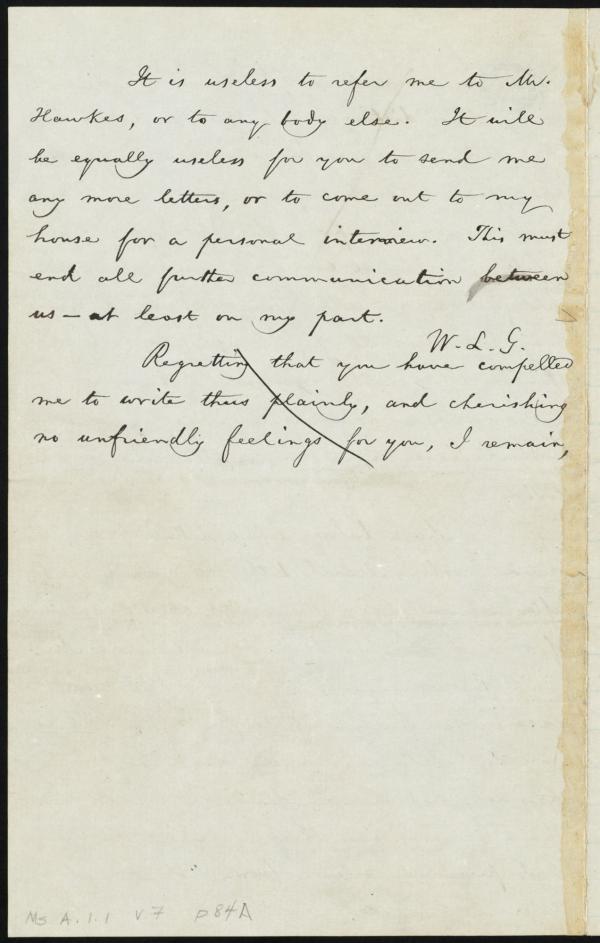 It is useless to refer me to Mr.
Hawkes, or to any body else. It will
be equally useless for you to send me
any more letters, or to come out to my
house for a personal interview. This must
end all further communication between
us — at least on my part.
W. L. G.
Regretting that you have compelled
me to write thus plainly, and cherishing
no unfriendly feelings for you, I remain,
Ms A. 1. 1 v 7 p 84A